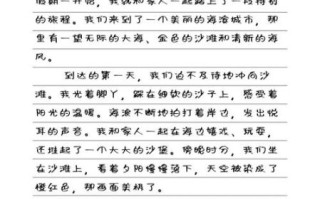 假期一开始，我就和家人一起踏上了一段特别
的旅程。我们来到了一个美丽的海滨城市，那
里有一望无际的大海、金色的沙滩和清新的海
风。
到达的第一天，我们迫不及待地冲向沙
滩。我光着脚丫，踩在细软的沙子上，感受着
阳光的温暖。海浪不断地拍打着岸边，发出悦
耳的声音。我和家人一起在海边嬉戏、玩耍，
还堆起了一个大大的沙堡。傍晚时分，我们坐
在沙滩上，看着夕阳慢慢落下，天空被染成了
橙红色，那画面美极了。